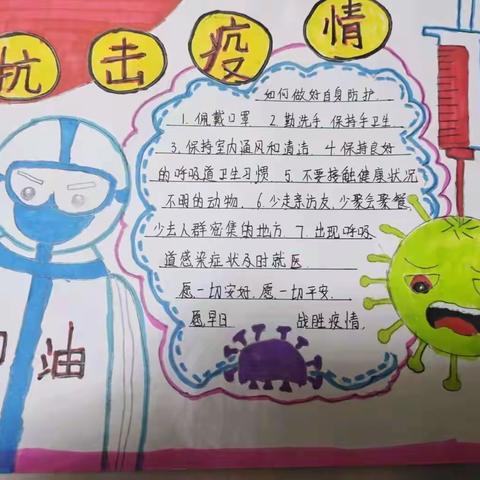 抗击疫情
如何做好自身防护
1.佩戴口罩 2.勤洗手,保持手卫生
3.保持室内通风和清洁. 4.保持良好
的呼吸道卫生习惯. 5.不要接触健康状况
不明的动物. 6.少走亲访友,少聚会聚餐,
少去人群密集的地方 7.出现呼吸
道感染症状及时就医.
愿一切安好,愿一切平安.
愿早日 战胜疫情.
加油